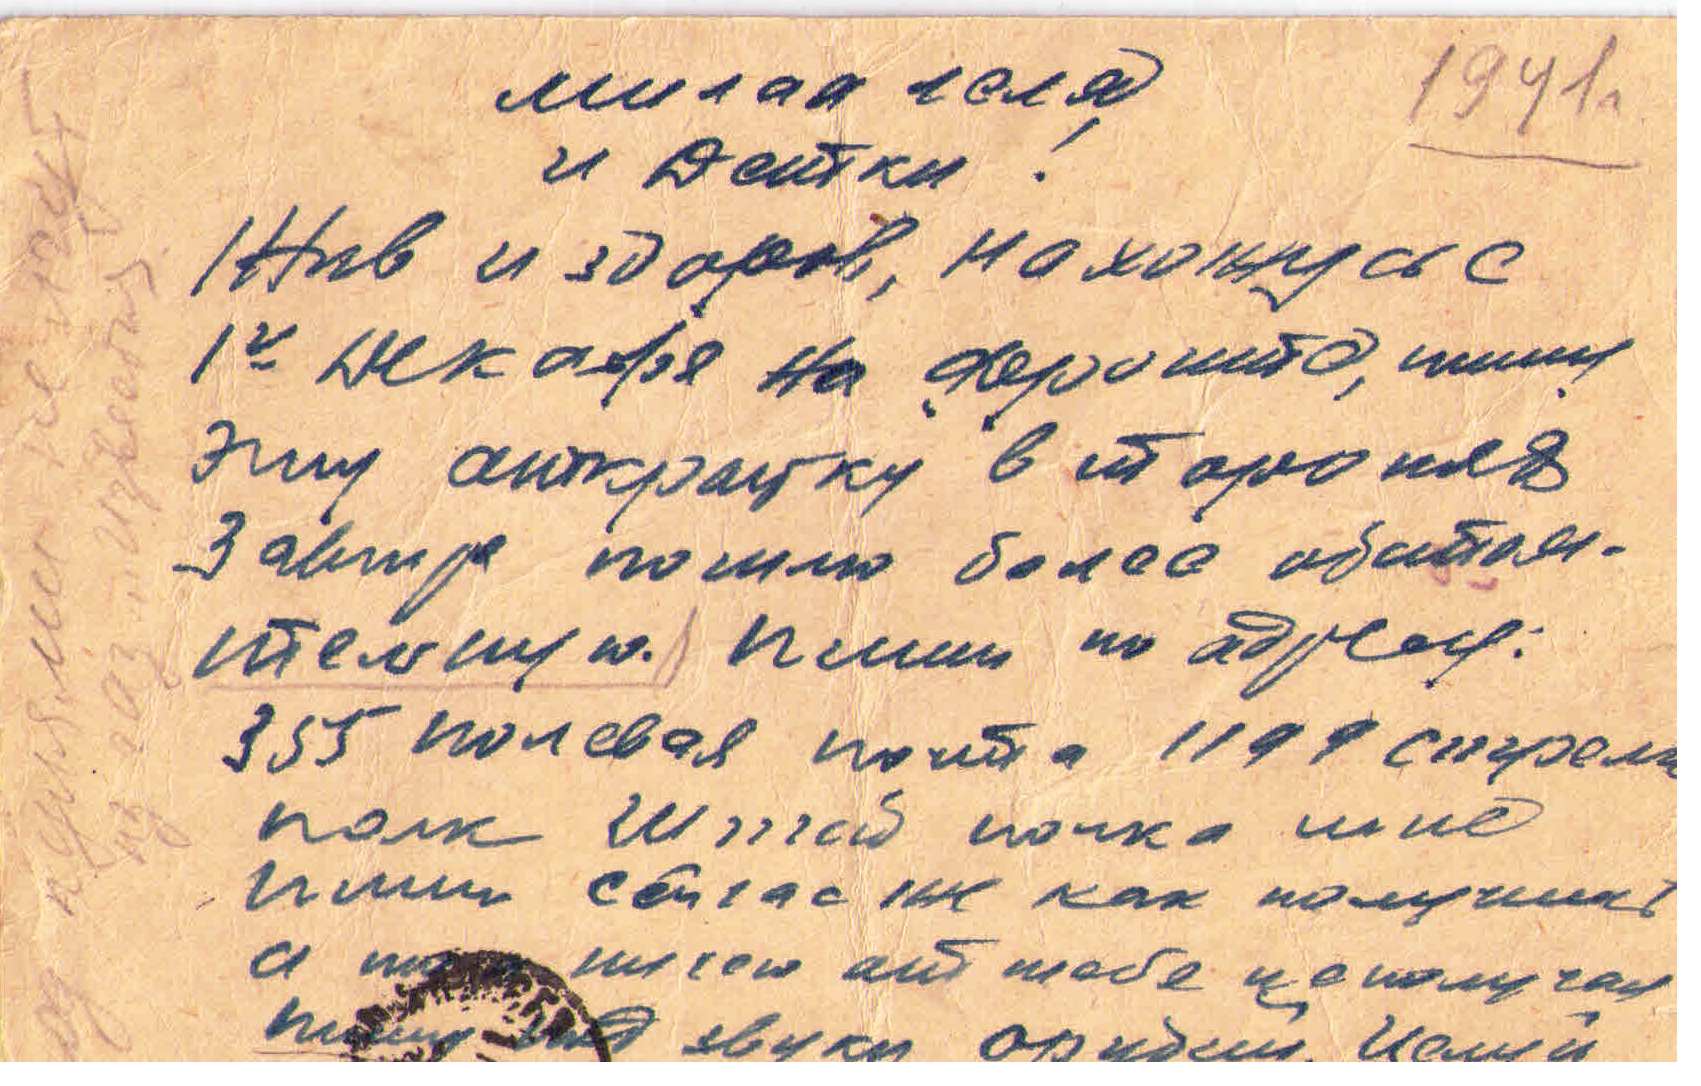 1941г.
милая леля
и Детки!
Жив и здоров, нахожусь с
1го Декабря на Фронте, пишу
эту открытку в тороплях
Завтра пошлю более обстоя-
тельную. Пиши по адресу:
355 полевая почта 1199 стрелк
полк Штаб почка мне
Пиши сейчас же как получишь
а то я ничего от тебе не получал
пишу под звуки орудий. Целую